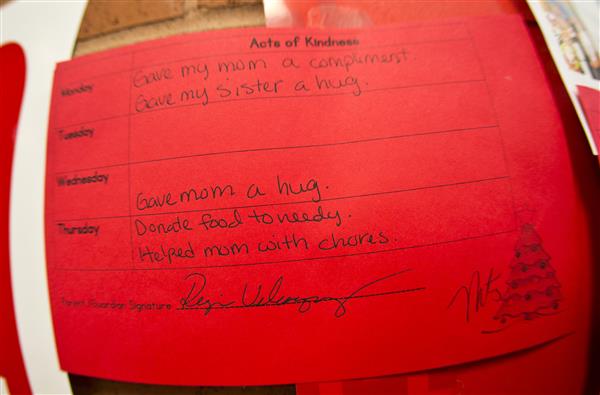 Acts of Kindness
Monday
Gave my mom a compliment.
Gave my sister a hug.
Tuesday
Wednesday
Gave mom a hug.
Thursday
Donate food to needy.
Helped mom with chores.
Parent/Guardian Signature